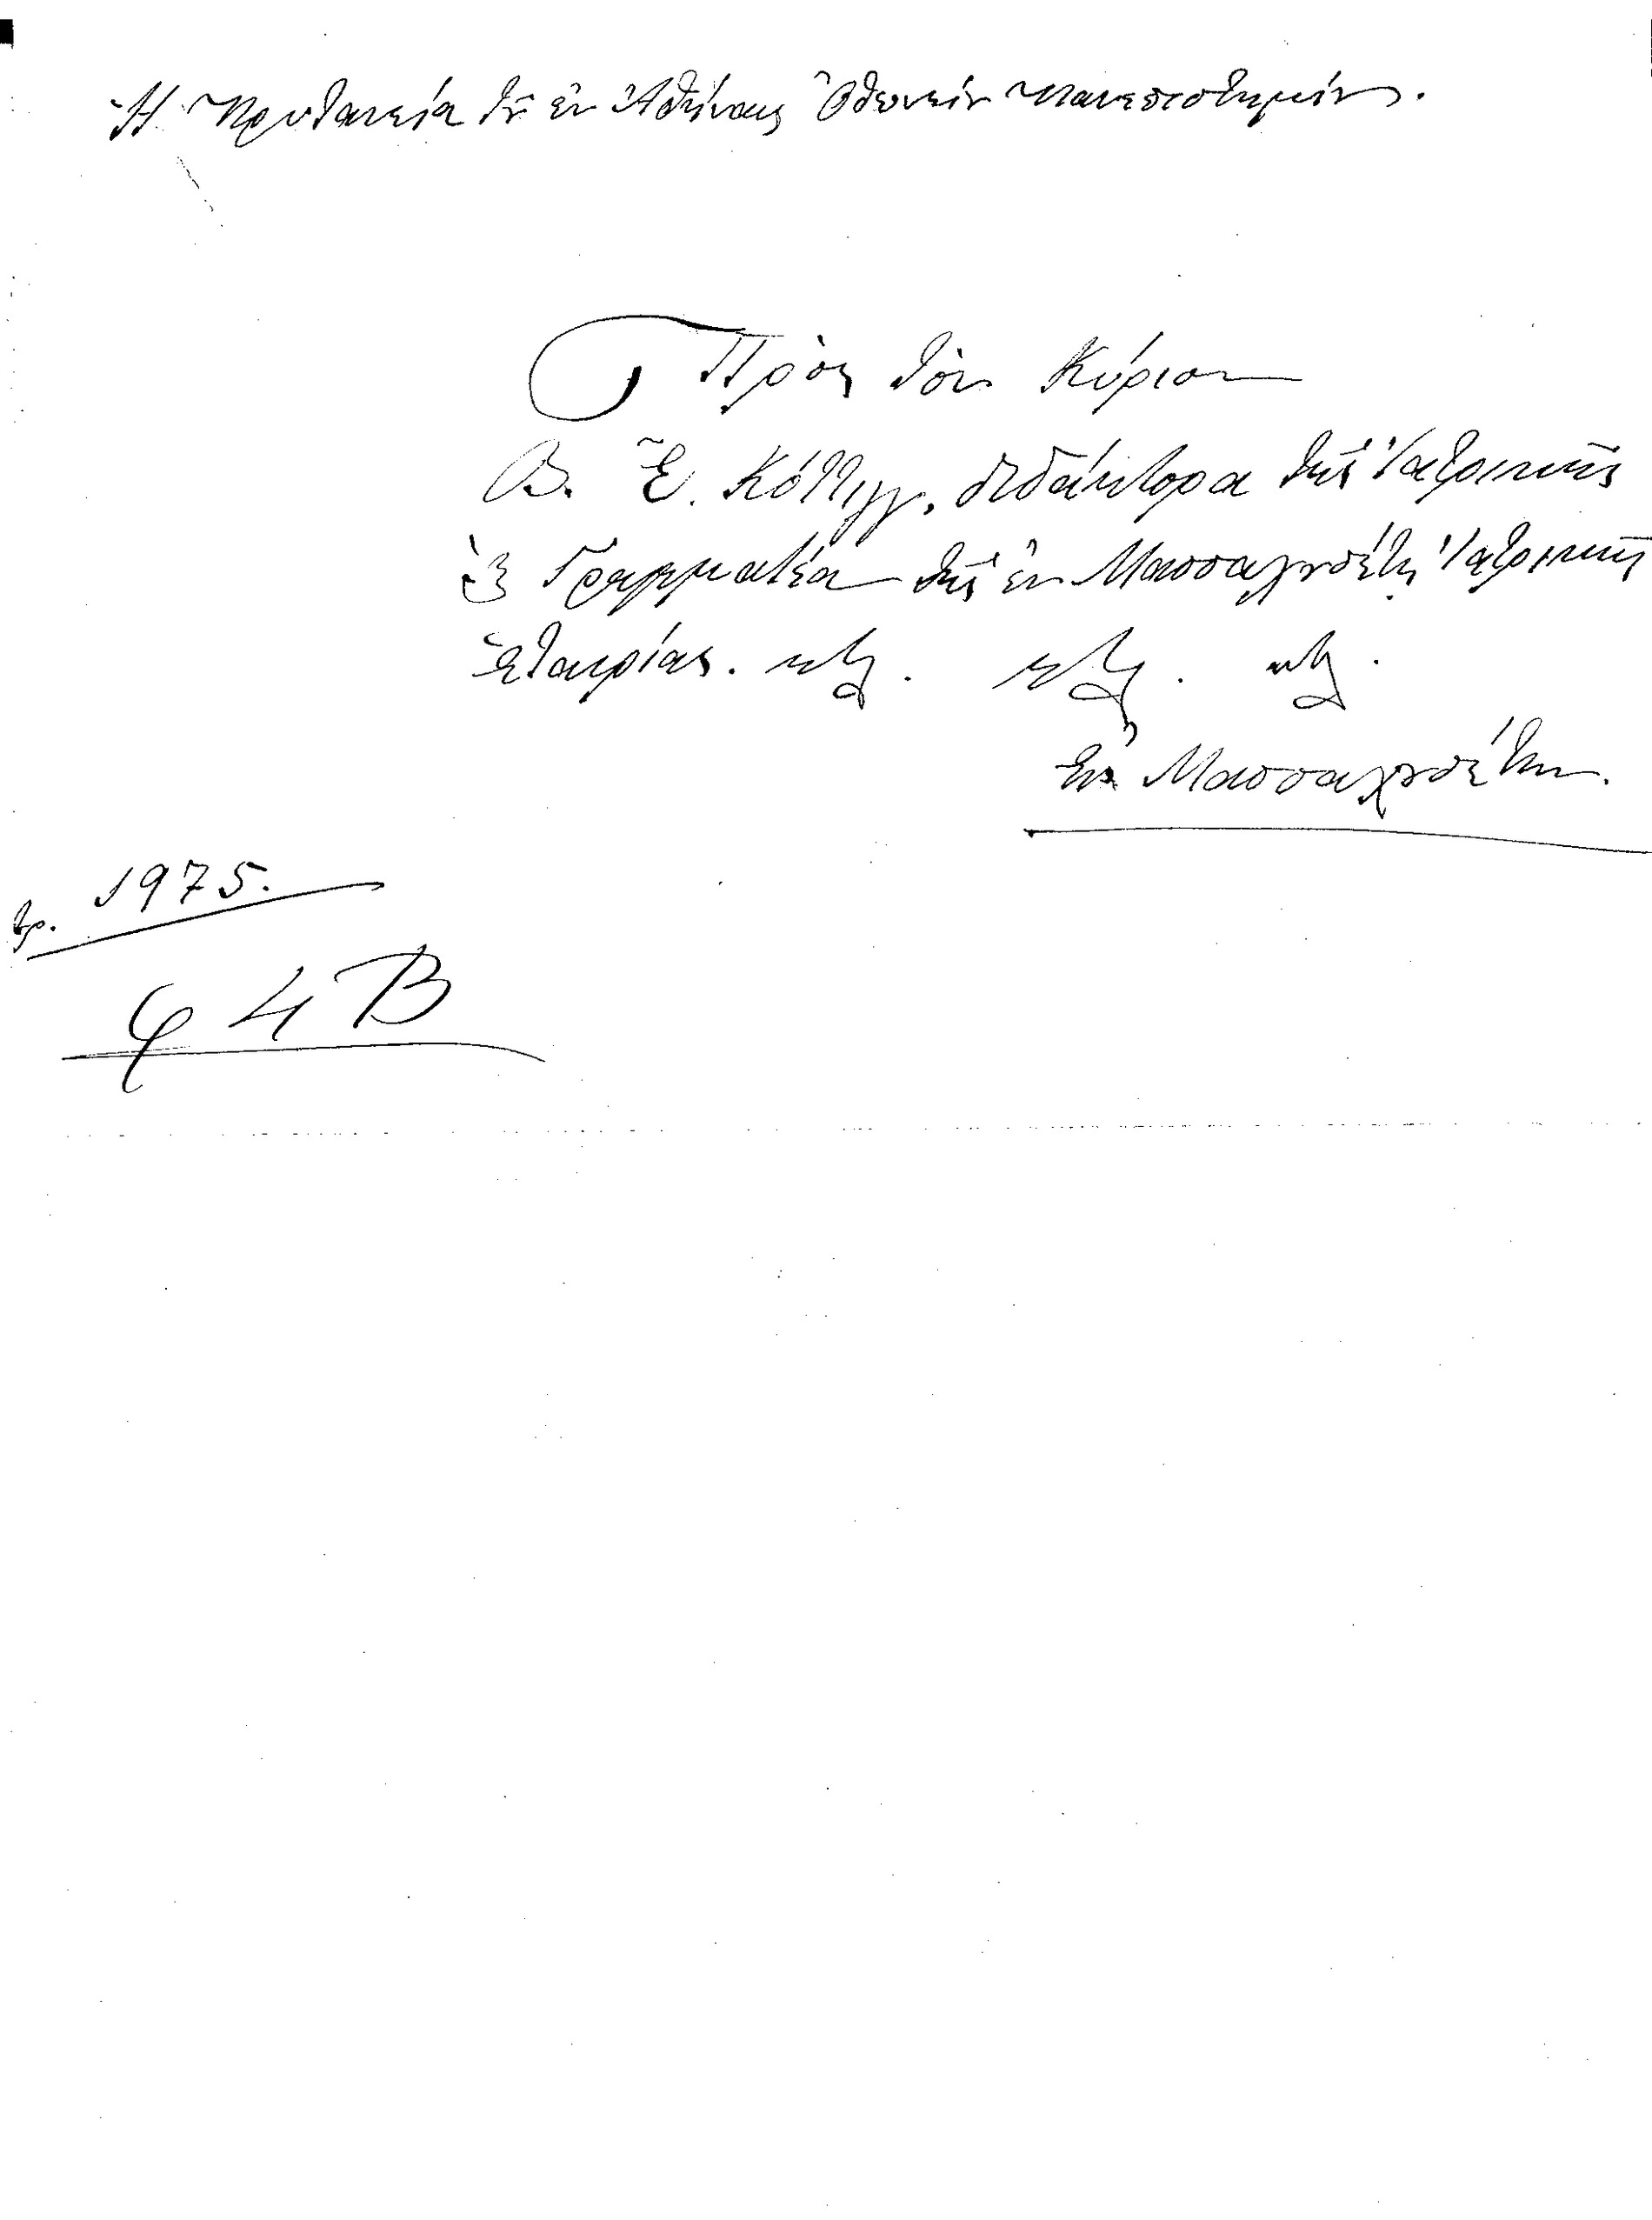 Ἡ Πρυτανεία τοῦ ἐν Ἀθήναις Ὀθωνείου Πανεπιστημίου.
Πρὸς τὸν Κύριον
Β. Ἐ. Κόττιγγ, διδάκτορα τῆς Ἰατρικῆς
Γραμματέα τῆς ἐν Μασσαχουσέτῃ Ἰατρικῆς
Ἑταιρίας. κτλ. κτλ. κτλ.
Εἰς Μασσαχουσέτην.
1975.
φ 4 Β